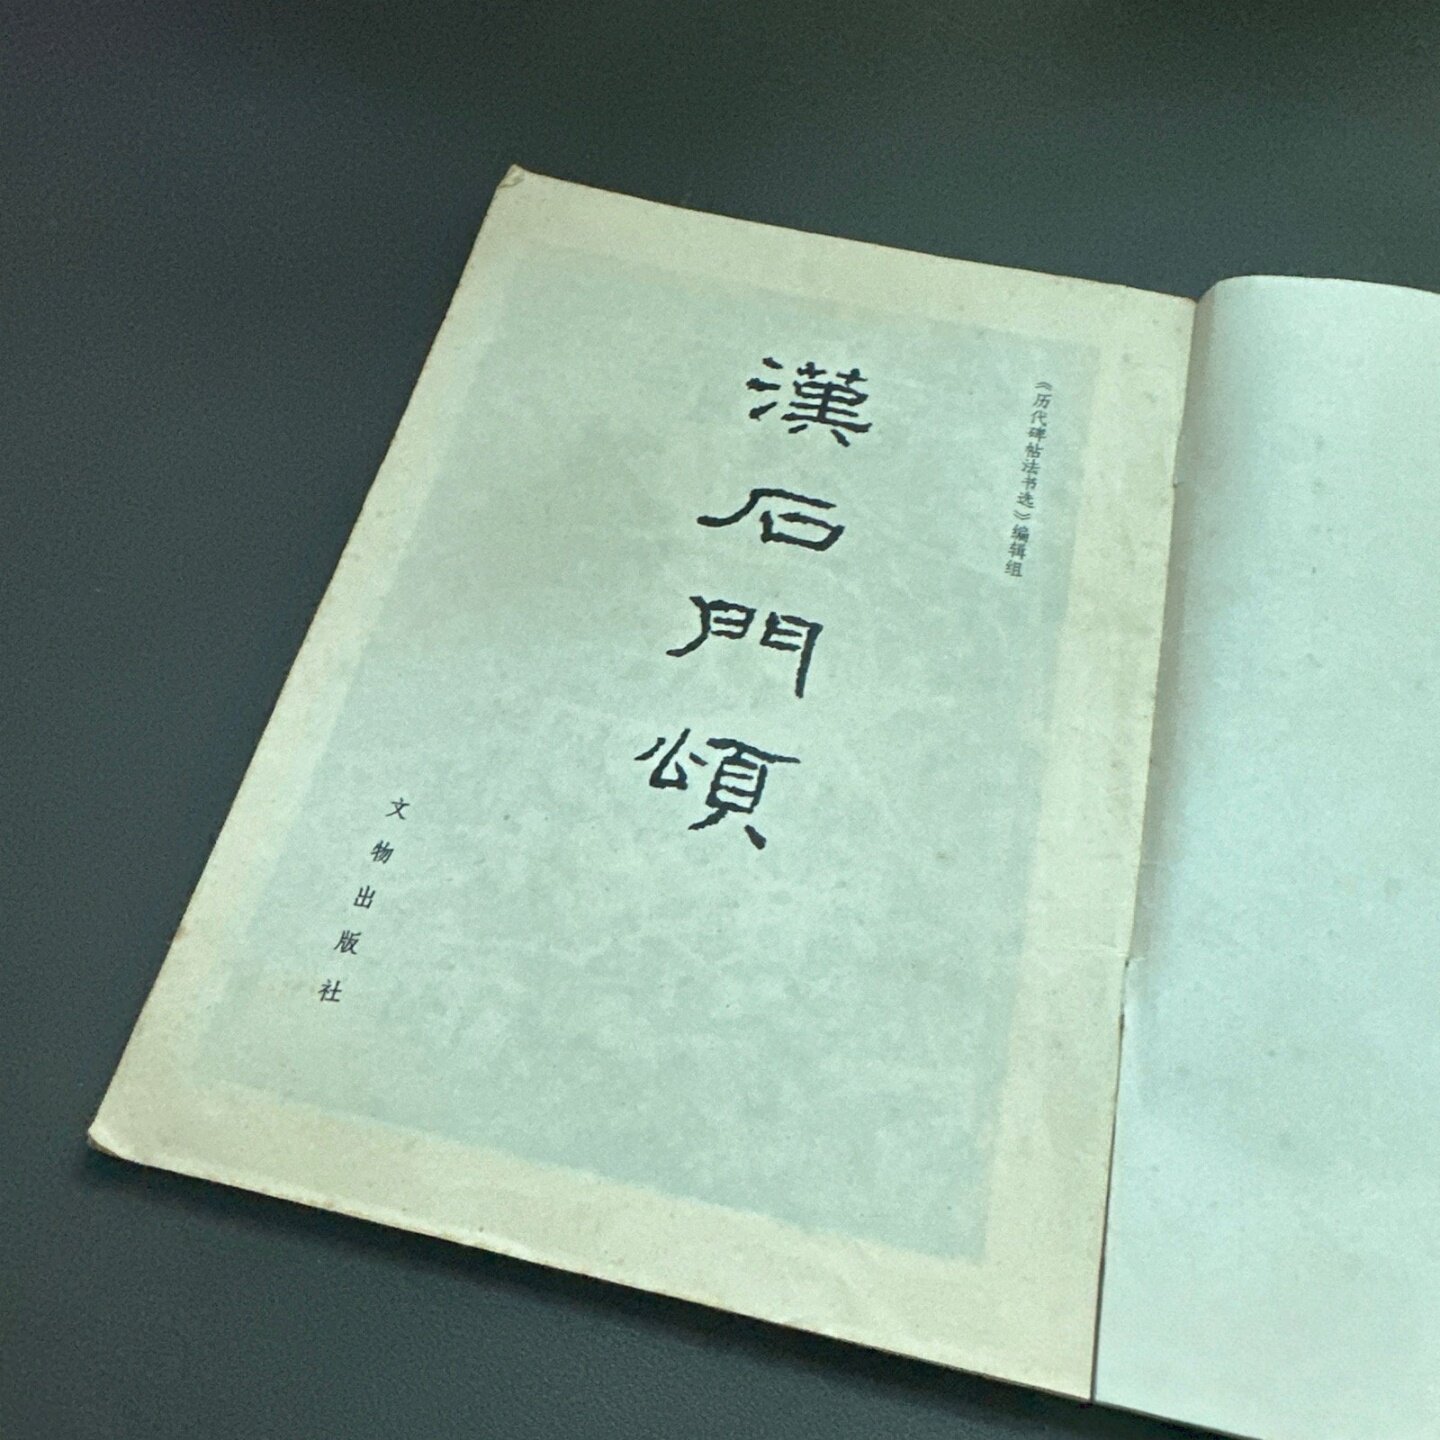 《历代碑帖法书选》编辑组
漢石門頌
文物出版社